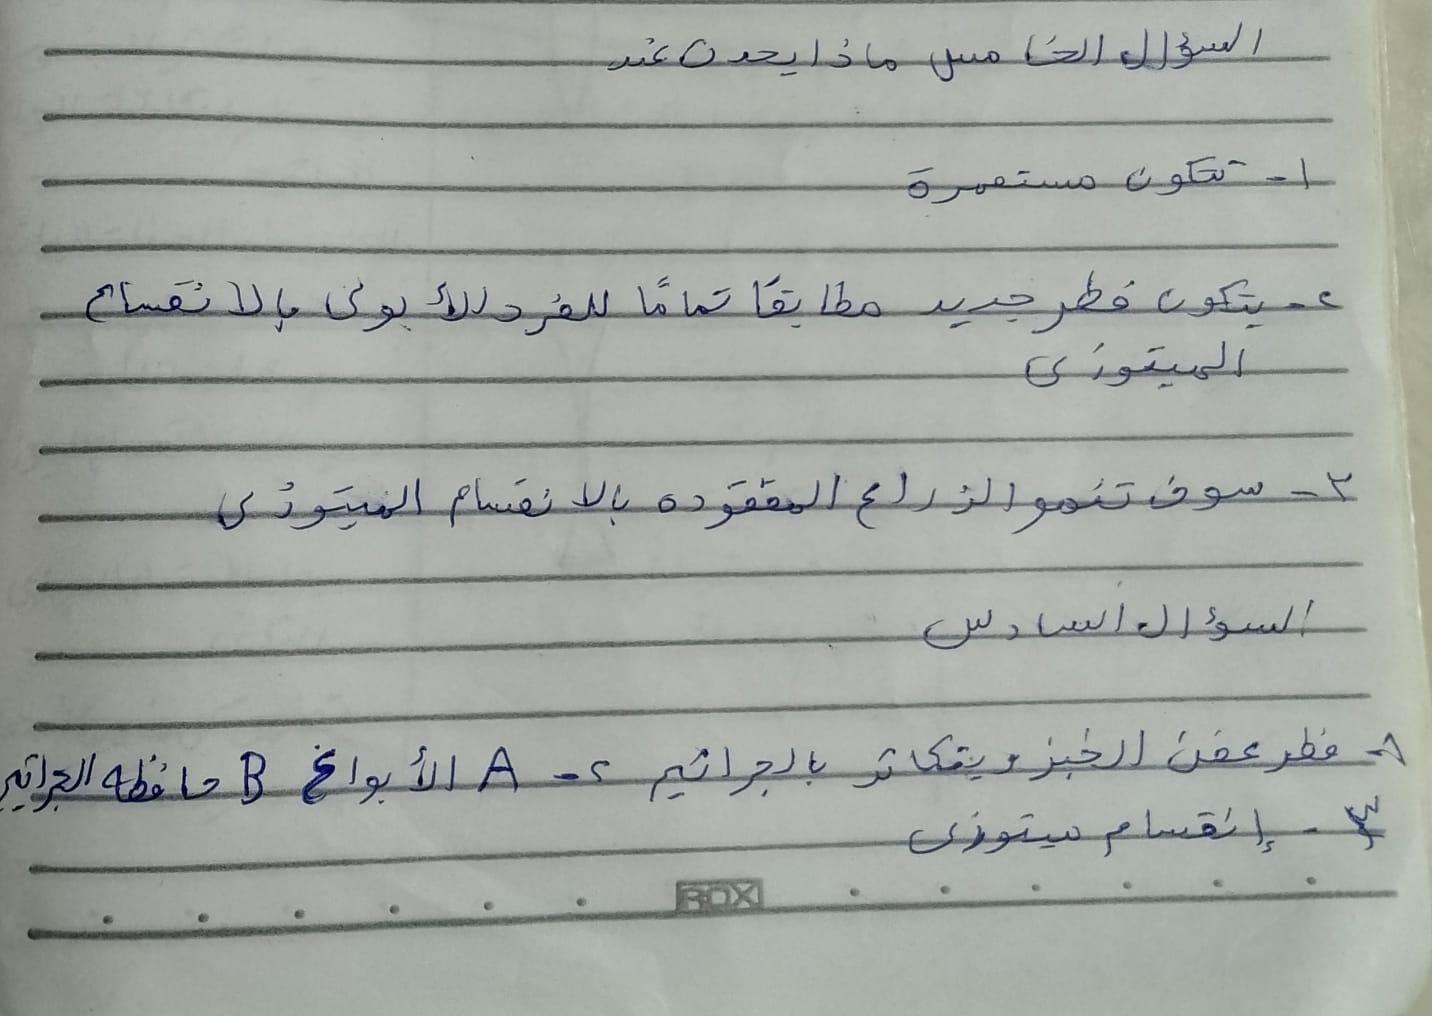 السؤال الخامس ماذا يحدث عند
١- تتكون مستعمرة
٢- يتكون فطر جديد مطابقًا تمامًا للفرد الأبوى بالانقسام
الميتوزى
٣- سوف تنمو الزراع المفقوده بالانقسام الميتوزى
السؤال السادس
١- فطر عفن الخبز ويتكاثر بالجراثيم ٢- A الأبواغ B حافظه الجراثيم
٣- إنقسام ميتوزى
ROX